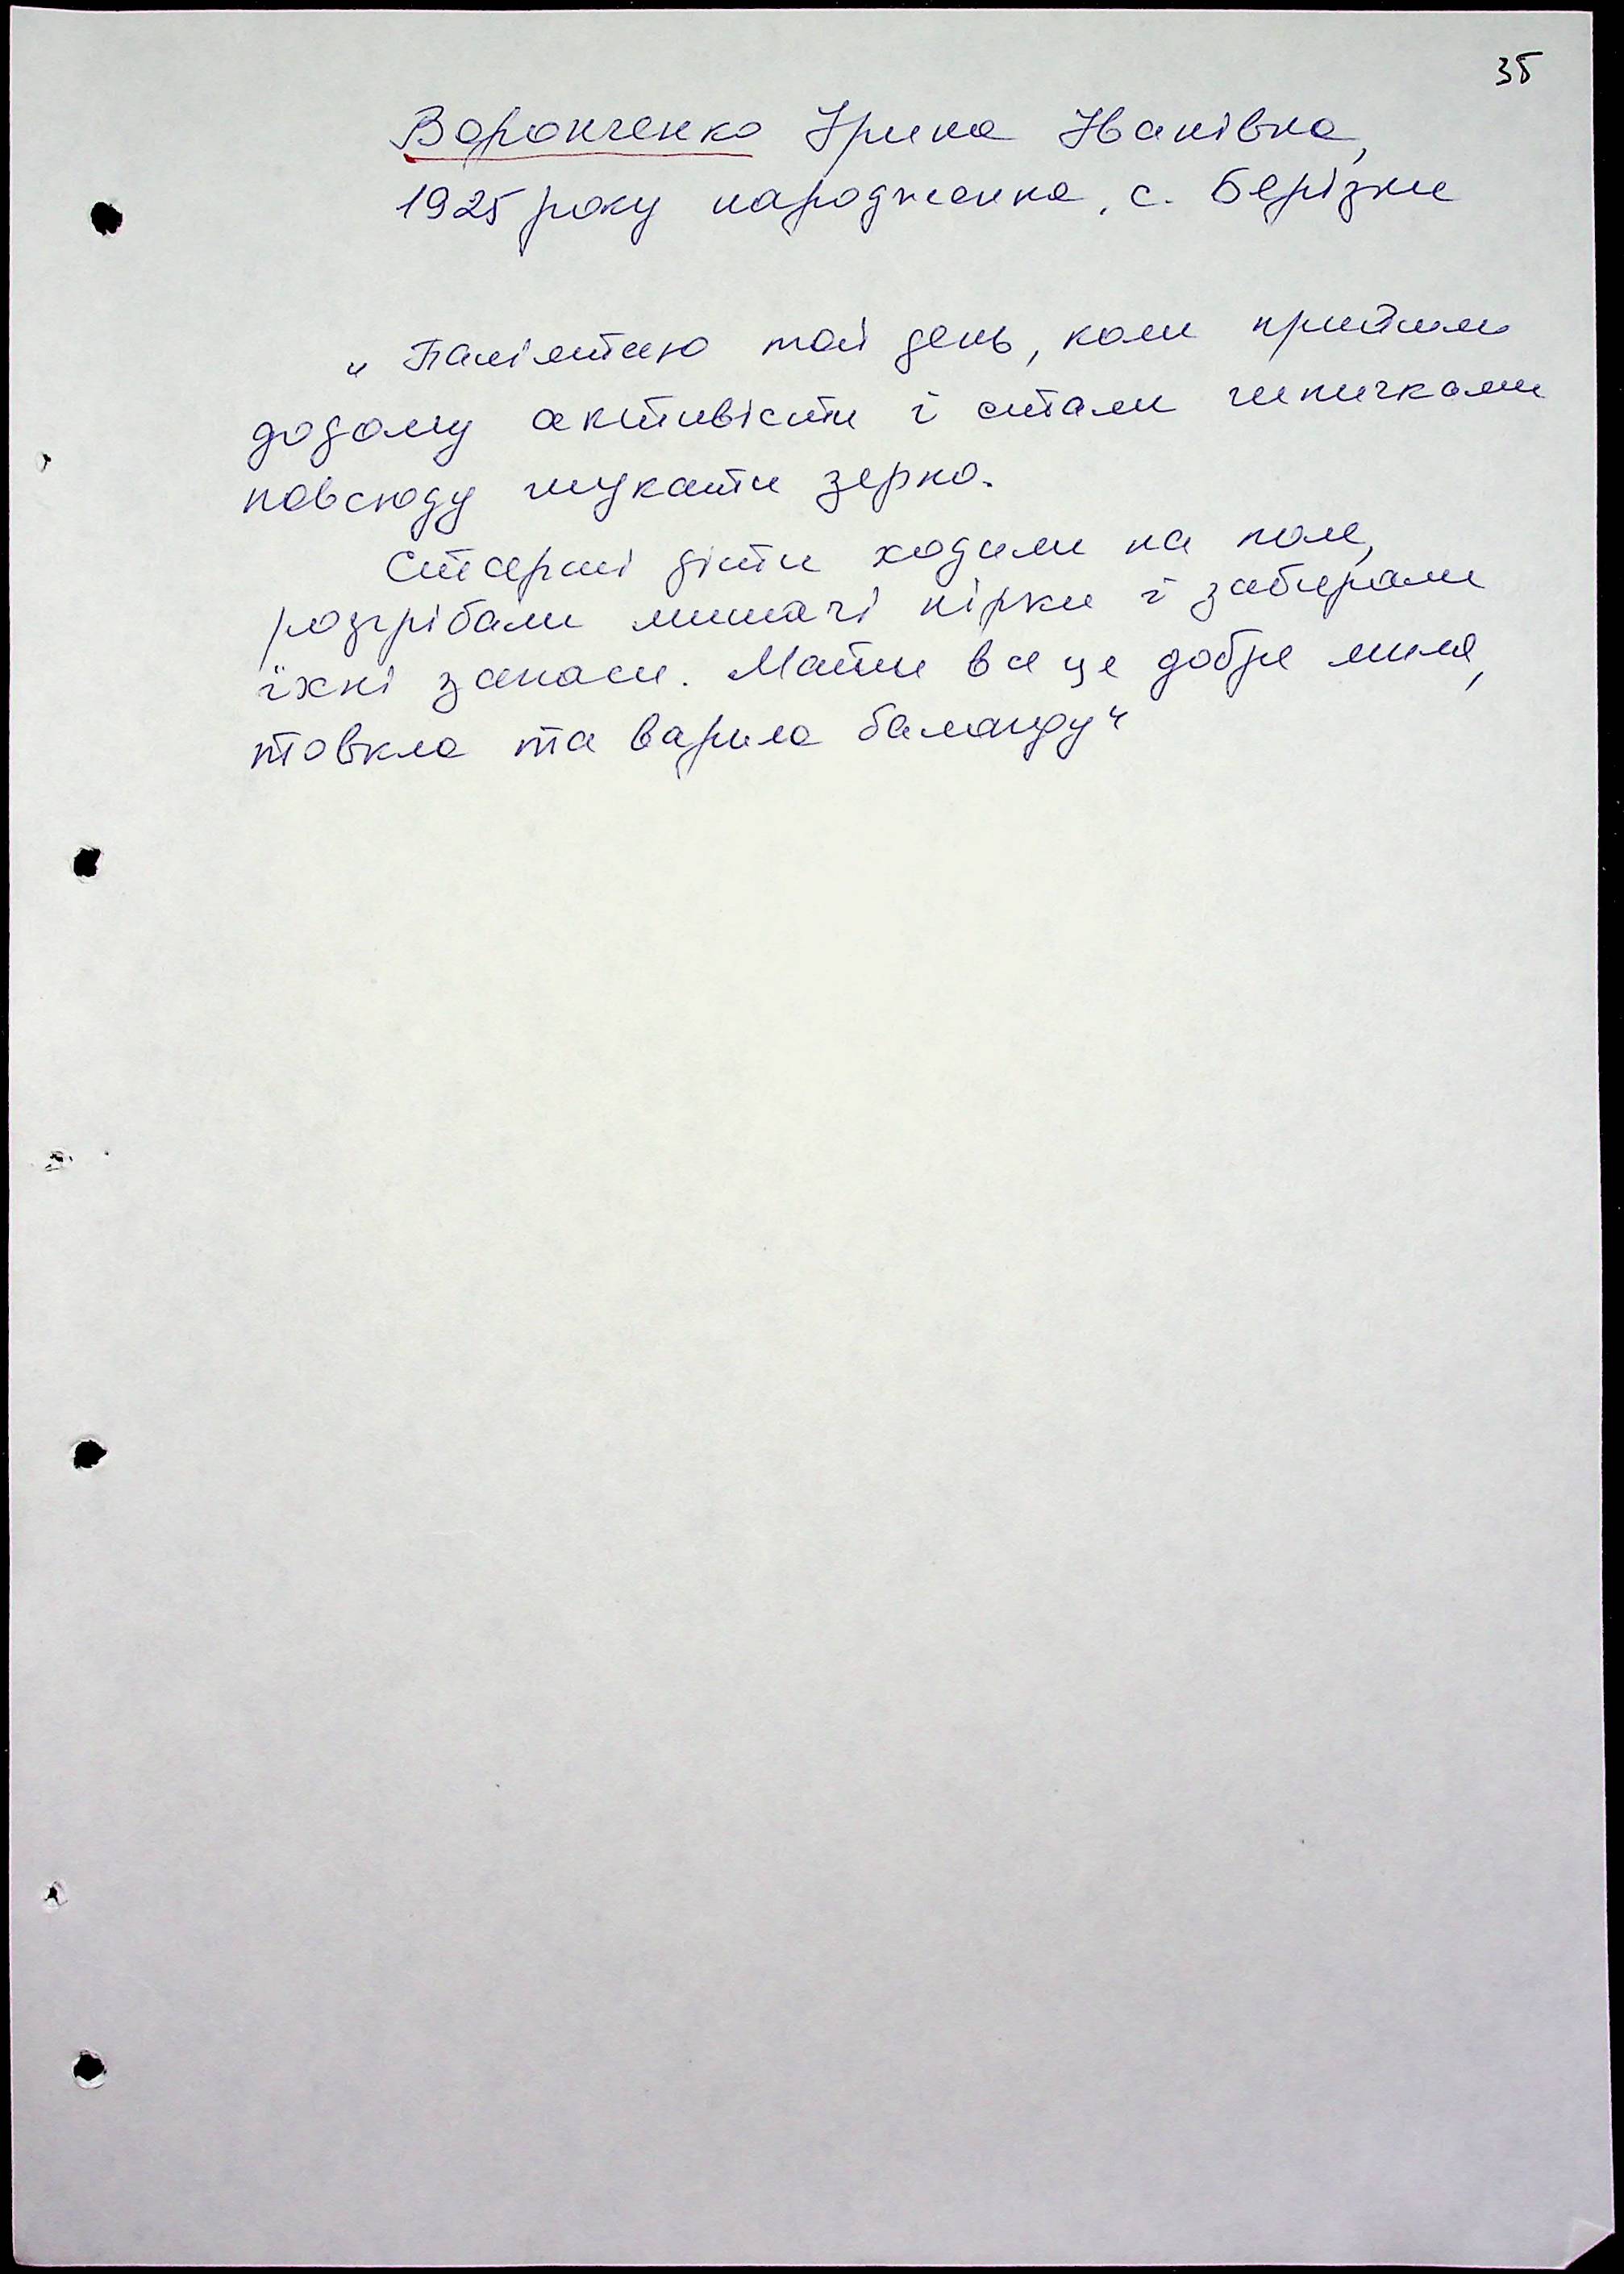 35
Воронченко Ірина Іванівна,
1925 року народження, с. Берізки
„Пам'ятаю той день, коли прийшли
додому активісти і стали шпичками
повсюду шукати зерно.
Старші діти ходили на поле,
розгрібали мишачі нірки і забирали
їхні запаси. Мати все це добре мила,
товкла та варила баланду“